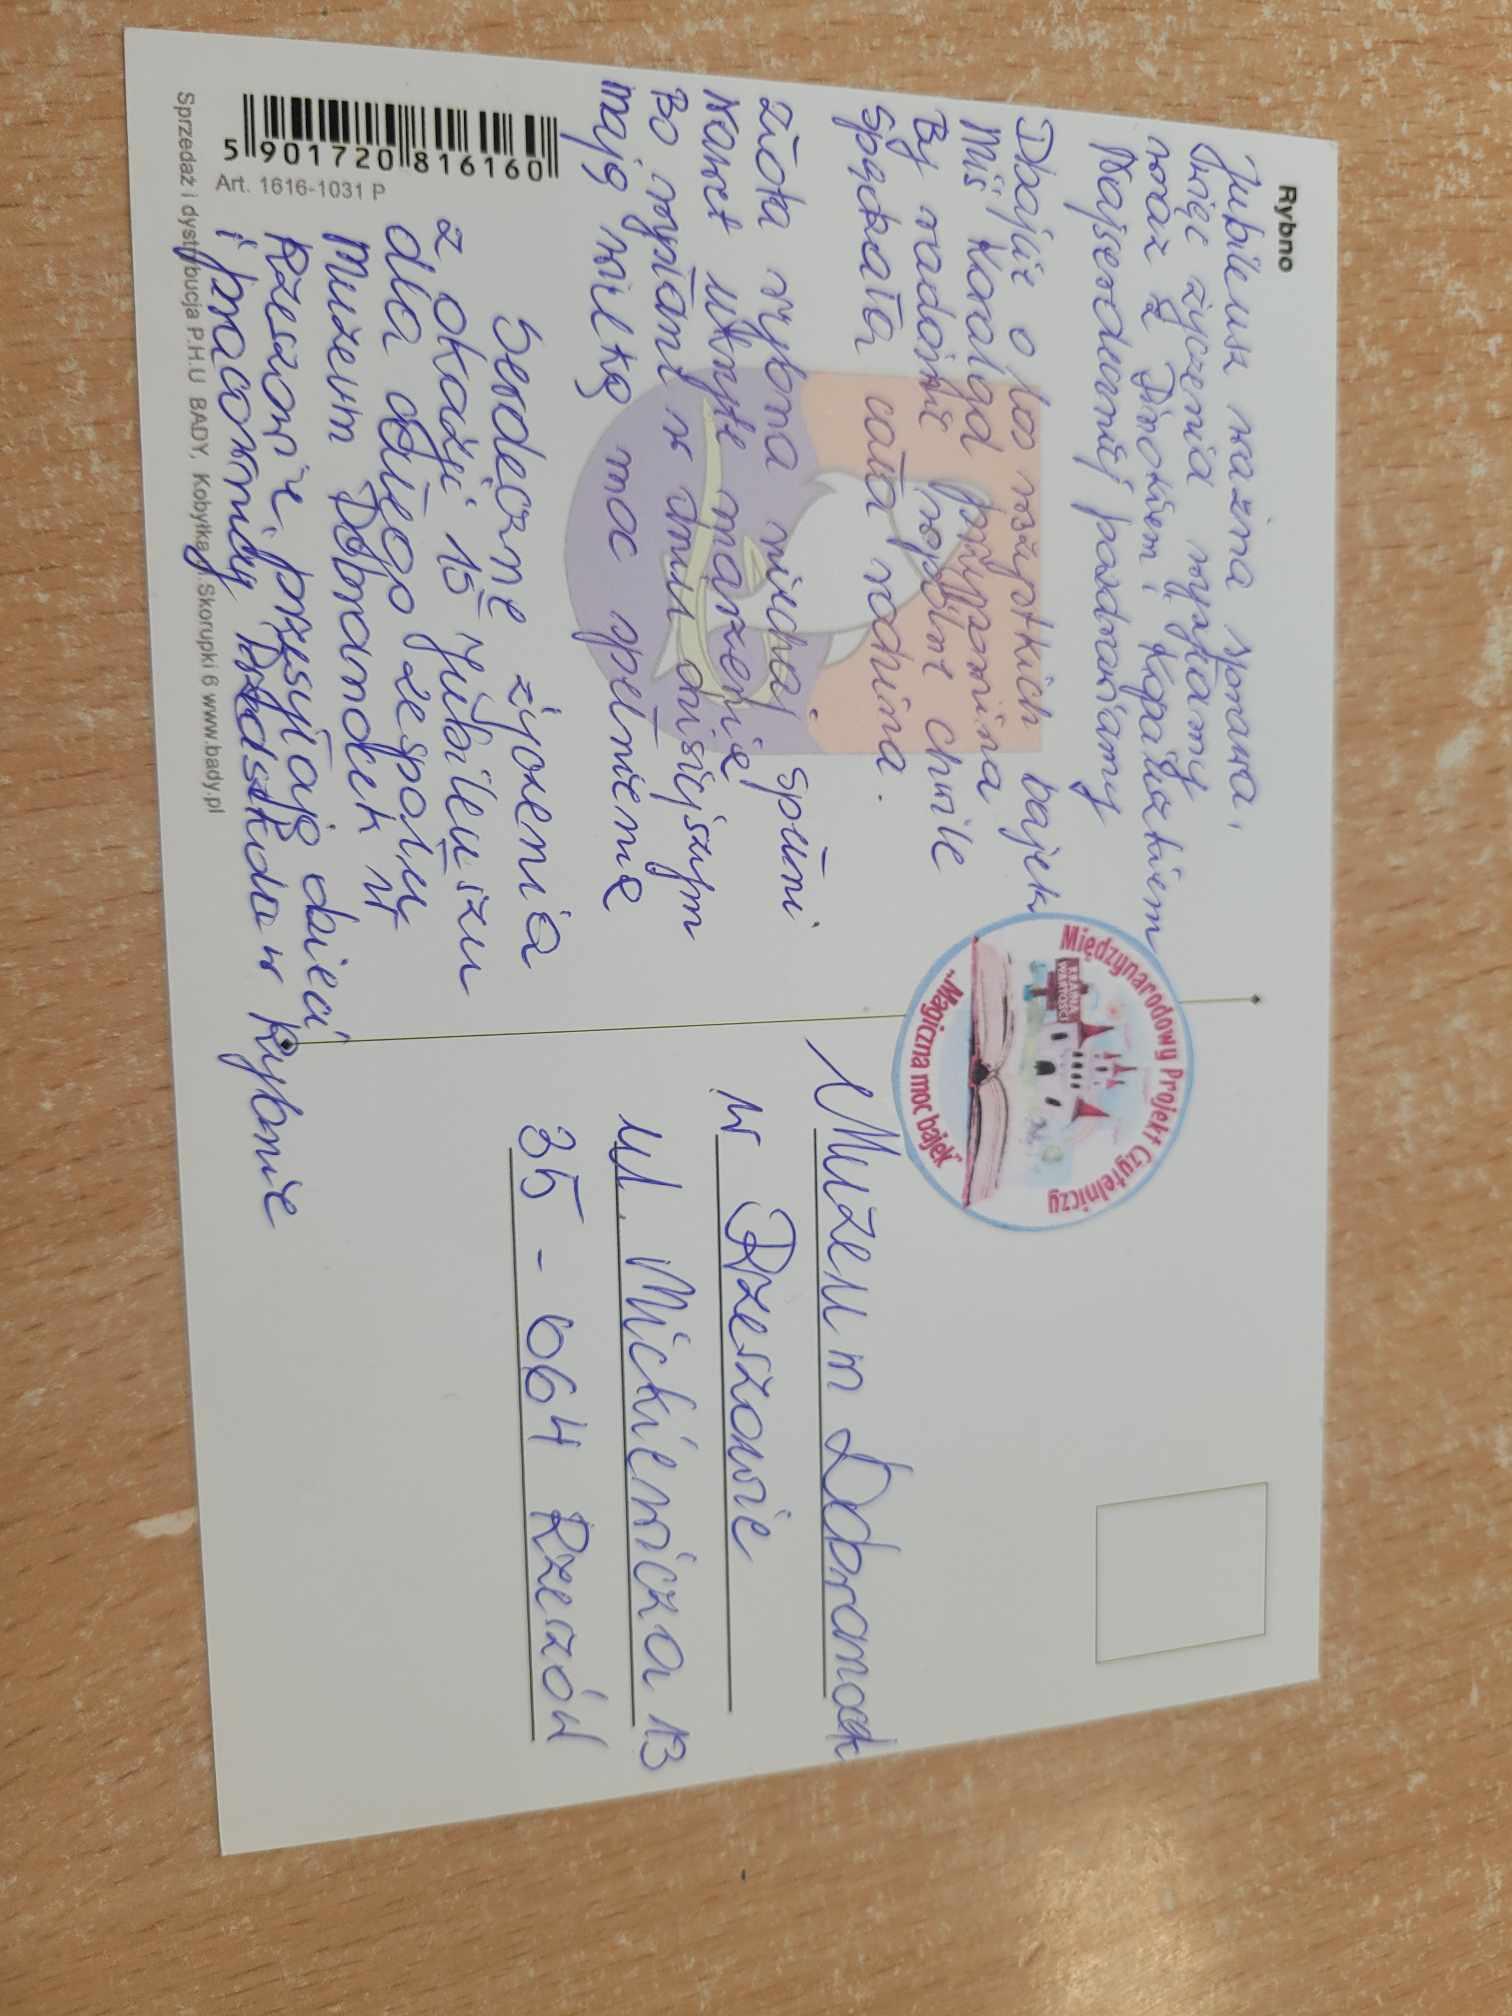 Rybno
Jubileusz ważna sprawa,
więc życzenia wysyłamy
wraz z Dinokiem i Kopałuszkiem
Najserdeczniej pozdrawiamy
Dbając o los wszystkich bajek
Miś Koralgol przypomina
By radośnie wspólne chwile
Spędzała cała rodzina.
Złota rybka niechaj spełni
Nawet ukryte marzenie
Bo wysłane w dniu dzisiejszym
mają wielką moc spełnienie
Serdeczne życzenia
z okazji 15 Jubileuszu
dla całego zespołu
Muzeum Dobranocek w
Rzeszowie, przesyłają dzieci
i pracownicy Przedszkola w Rybnie
5 901720 816160
Art. 1616-1031 P
Sprzedaż i dystrybucja P.H.U BADY, Kobyłka Skorupki 6 www.bady.pl
Międzynarodowy Projekt Czytelniczy
KRAINA
WARTOŚCI
„Magiczna moc bajek"
Muzeum Dobranocek
w Rzeszowie
ul. Mickiewicza 13
35-064 Rzeszów